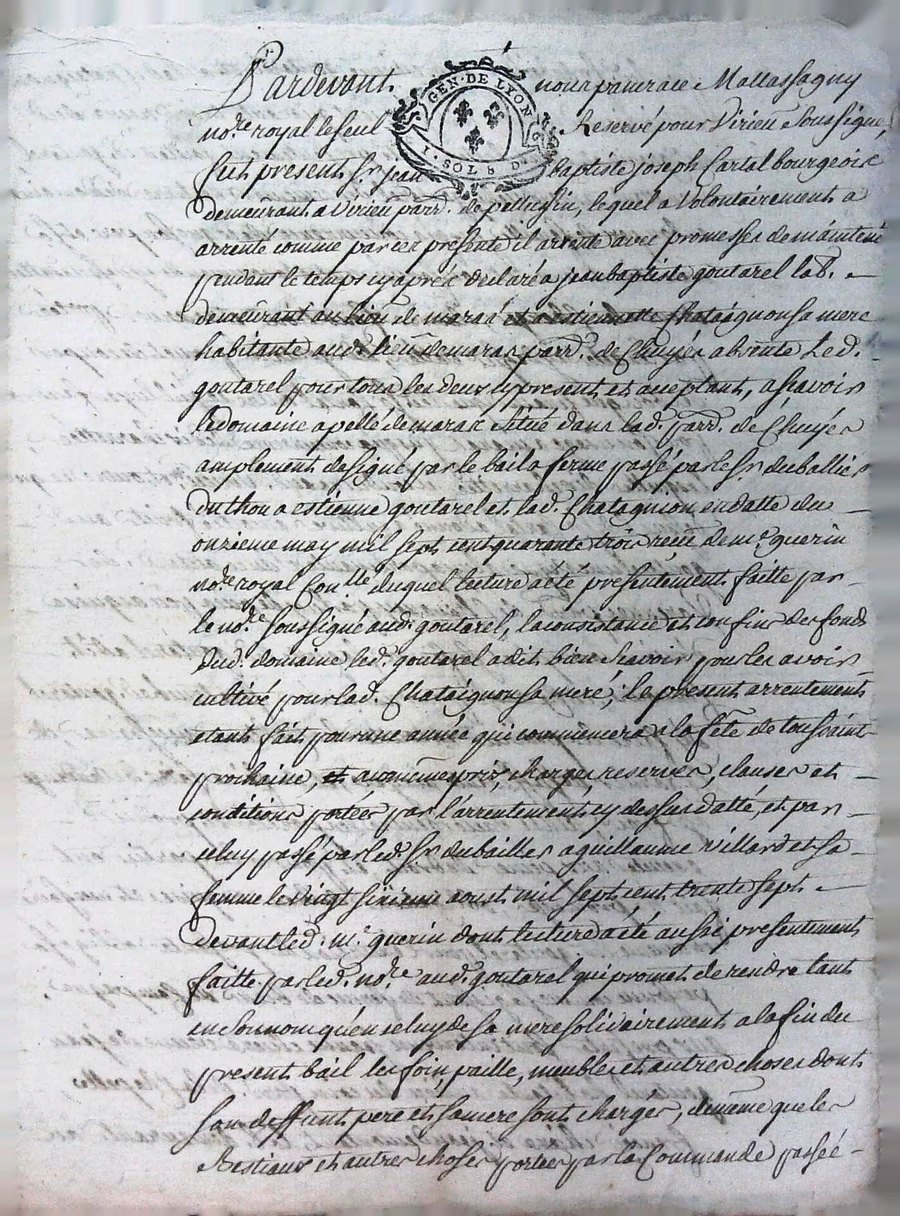 Pardevant nous pancrace Mallassagny
GEN · DE LYON
I · SOL 8 D
no.re royal le seul Reservé pour Virieu Soussigné,
fut present Sr. jean baptiste joseph Cartal bourgeois
demeurant a Virieu parr. de pellussin, lequel a Volontairement a
arrenté comme par ces presente il arrente avec promesses de maintenue
pendant le temps cy apres declaré a jean baptiste goutarel lab.
demeurant au lieu de maras et a estiennette Chataignon sa mere
habitante aud. lieu de maras parr. de Chuyer absente Led.
goutarel pour tous les deux cy present et acceptant, a sçavoir
le domaine apellé de maras Situé dans lad. parr. de Chuyer
amplement designé par le bail a ferme passé par le Sr. duballier
duthon a estienne goutarel et lad. Chatagnion en datte du
onzieme may mil sept cent quarante trois reçu de me. guerin
no.re royal duquel lecture a eté presentement faitte par
le no.re soussigné aud. goutarel, la consistance et confins des fonds
dud. domaine led. goutarel a dit bien sçavoir pour les avoir
cultivé pour lad. Chataignon sa meré, le present arrentement
etant fait pour une année qui commencera a la fête de toussaint
prochaine, et au même prix, charges, reserves, clauses et
conditions portées par l'arrentement cy dessus datté, et par
celuy passé par led. Sr. dubailler a guillaume Villard et sa
femme le vingt sixieme aoust mil sept cent trente sept
devant led. me. guerin dont lecture a eté aussi presentement
faitte par led. no.re aud. goutarel qui promet de rendre tant
en son nom qu'en celuy de sa mere solidairement a la fin du
present bail les foin, paille, meubles et autres choses dont
son deffunt pere et sa mere sont chargés, de même que les
Bestiaux et autres choses portées par la Commande passée